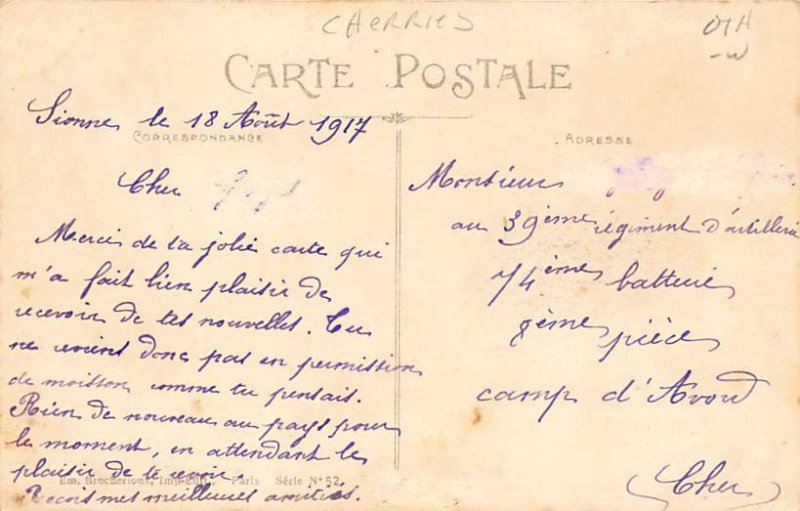 CHERRIES
CARTE POSTALE
Sionne, le 18 Août 1917
CORRESPONDANCE
Cher
Merci de ta jolie carte qui
m'a fait bien plaisir de
recevoir de tes nouvelles. Tu
ne revient donc pas en permission
de moisson comme tu pensais.
Rien de nouveau au pays pour
le moment, en attendant le
plaisir de te revoir.
Em. Brocherioux, Imp-Edit., Paris Série N° 52
Recois mes meilleures amitiés.
ADRESSE
Monsieur
au 39ème régiment d'artillerie
74ème batterie
8ème pièce
camp d'Avord
(Cher)